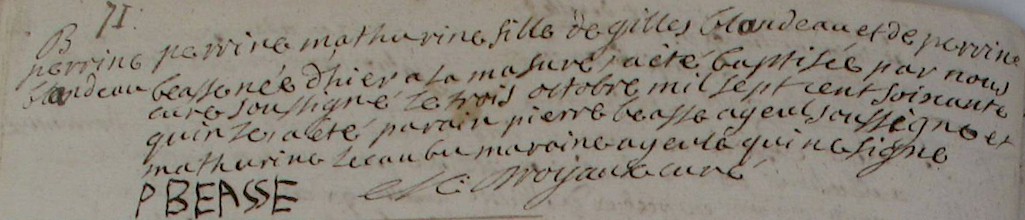 B 71.
perrine
blandeau
perrine mathurine fille de gilles blandeau et de perrine
beasse née d'hier a la masure, a été baptisée par nous
curé soussigné le trois octobre mil sept cent soixante
quinze, a été parain pierre beasse ayeul soussigné et
mathurine maraine ayeule qui ne signe
P BEASSE curé